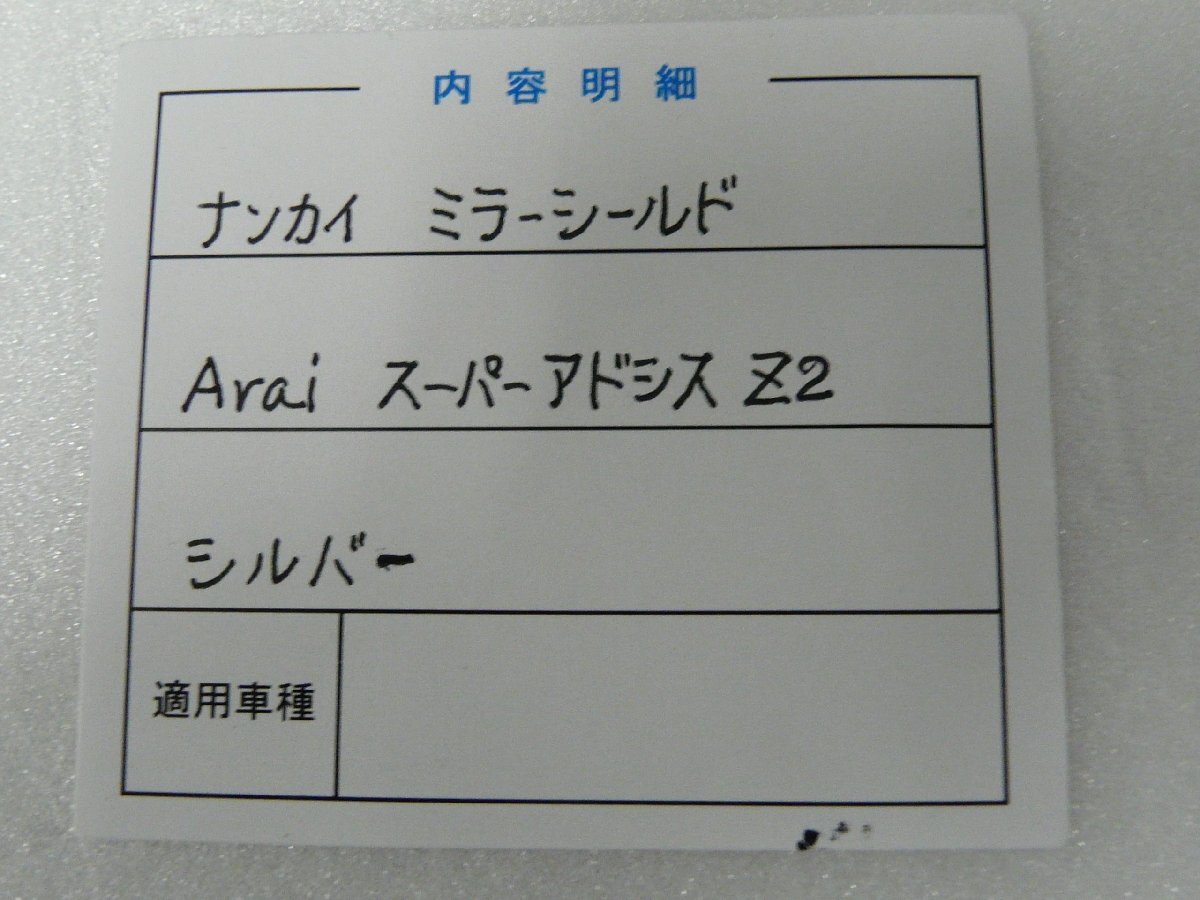 内容明細
ナンカイ ミラーシールド
Arai スーパーアドシス Z2
シルバー
適用車種